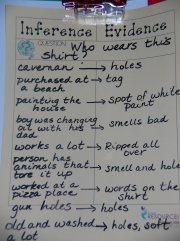 Inference Evidence
QUESTION: Who wears this
shirt?
cavernan → holes
purchased at → tag
a beach
painting the → spot of white
house paint
boy was changing
oil with his → smells bad
dad
works a lot → Ripped all
over
person has
animals that → smell and hole
tore it up
worked at a → words on the
pizza place shirt
gun holes → holes
old and washed → holes, soft
a lot